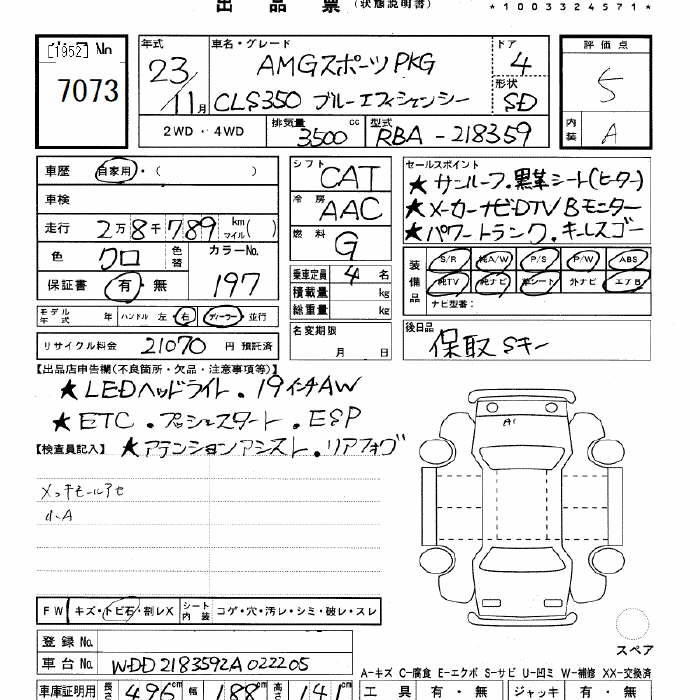 出品票 (状態説明書) *1003324571*
[1952] No
7073
年式 車名・グレード ドア 評価点
23/11月 AMGスポーツPKG 4 5
CLS350 ブルーエフィシェンシー 形状 SD
2WD・4WD 排気量 3500 cc 型式 RBA-218359 内装 A
車歴 自家用・( )
車検
走行 2万8千789 km マイル( )
色 クロ 色替 カラーNo. 197
保証書 有・無
モデル年式 年 ハンドル 左 右 ディーラー 並行
リサイクル料金 21070 円 預託済
シフト CAT
冷房 AAC
燃料 G
乗車定員 4 名
積載量 kg
総重量 kg
名変期限 月 日
セールスポイント
★サンルーフ.黒革シート(ヒーター)
★メーカーナビDTVBモニター
★パワートランク.キーレスゴー
装備品 S/R 純A/W P/S P/W ABS
純TV 純ナビ 革シート 外ナビ エアB
ナビ型番:
後日品
保取Sキー
【出品店申告欄(不良箇所・欠品・注意事項等)】
★LEDヘッドライト.19インチAW
★ETC.プッシュスタート.ESP
【検査員記入】★アテンションアシスト.リアフォグ
メッキモールアセ
小A
A1
FW キズ・トビ石・割レX シート内装 コゲ・穴・汚レ・シミ・破レ・スレ
登録No.
車台No. WDD2183592A022205
スペア
A-キズ C-腐食 E-エクボ S-サビ U-凹ミ W-補修 XX-交換済
車庫証明用 長さ 496 cm 幅 188 cm 高さ 141 cm 工具 有・無 ジャッキ 有・無